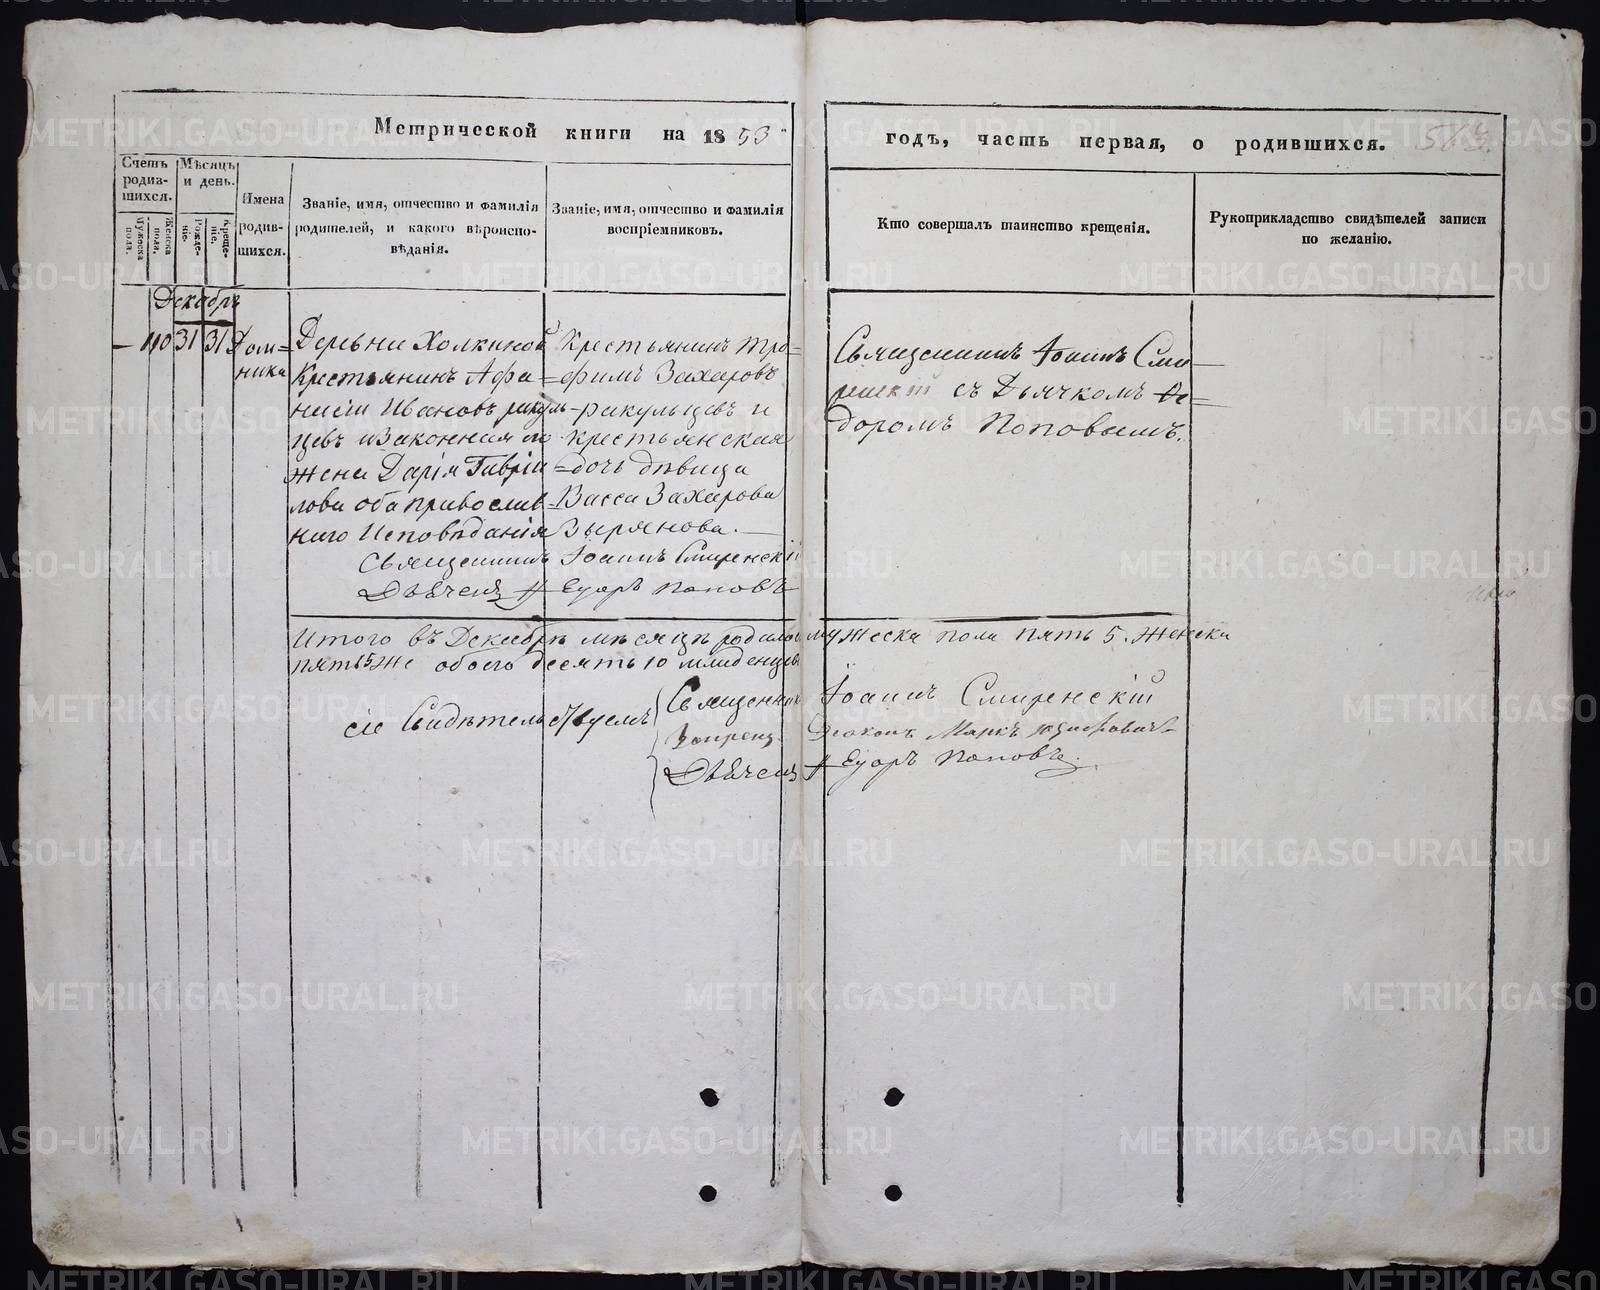 Метрической книги на 1853
годъ, часть первая, о родившихся. 563.
Счетъ родив-шихся.
Мѣсяцъ и день.
Мужеска пола.
Женска пола.
Рожде-нія.
Креще-нія.
Имена родив-шихся.
Званіе, имя, отчество и фамилія
родителей, и какого вѣроиспо-
вѣданія.
Званіе, имя, отчество и фамилія
воспріемниковъ.
Кто совершалъ таинство крещенія.
Рукоприкладство свидѣтелей записи
по желанію.
Декабрь
– 110 31 31 Дом=
ника
Деревни Холкиной
Крестьянинъ Афа=
насій Ивановъ ракуль-
цевъ и законная его
жена Дарія Гаврі
лова оба православ=
наго Исповѣданія
Крестьянинъ Тро=
фимъ Захаровъ
ракульцевъ и
крестьянская
дочь дѣвица
Васса Захарова
Зырянова.
Священникъ Іоаннъ Сми
ренскій съ Дьячкомъ Ѳе=
доромъ Поповымъ.
Священникъ Іоаннъ Смиренскій
Дьячекъ Ѳедоръ Поповъ
Итого въ Декабрѣ мѣсяцѣ родилось мужеска пола пять 5. Женска
пять 5 же обоего десять 10 младенцевъ
сіе Свидѣтельствуемъ
Священникъ Іоаннъ Смиренскій
Діаконъ Маркъ
Дьячекъ Ѳедоръ Поповъ.
METRIKI.GASO-URAL.RU